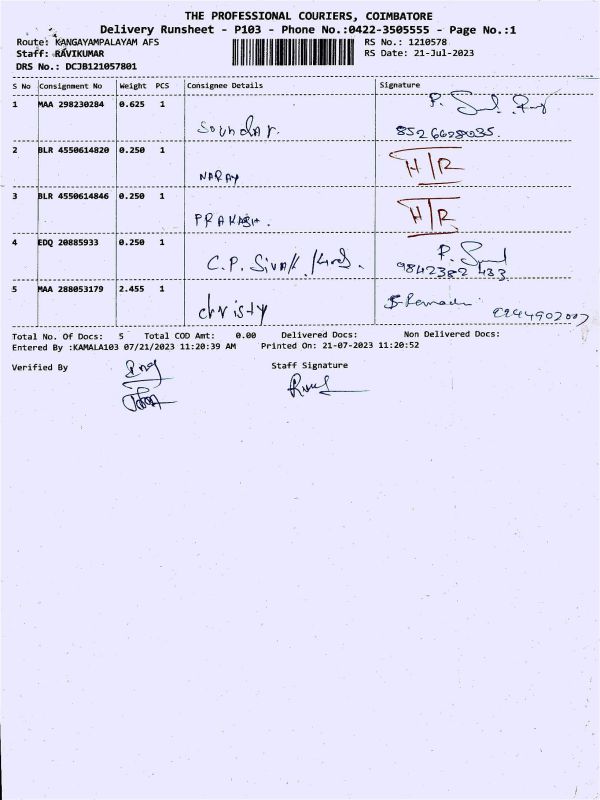 THE PROFESSIONAL COURIERS, COIMBATORE
Delivery Runsheet - P103 - Phone No.:0422-3505555 - Page No.:1
Route: KANGAYAMPALAYAM AFS RS No.: 1210578
Staff: RAVIKUMAR RS Date: 21-Jul-2023
DRS No.: DCJB121057801
S No Consignment No Weight PCS Consignee Details Signature
1 MAA 298230284 0.625 1
Soundar.
2 BLR 4550614820 0.250 1 H/R
NARAY
3 BLR 4550614846 0.250 1 H/R
PRAKASH.
4 EDQ 20885933 0.250 1
C.P. 9842382433
5 MAA 288053179 2.455 1
christy
Total No. Of Docs: 5 Total COD Amt: 0.00 Delivered Docs: Non Delivered Docs:
Entered By :KAMALA103 07/21/2023 11:20:39 AM Printed On: 21-07-2023 11:20:52
Verified By Staff Signature